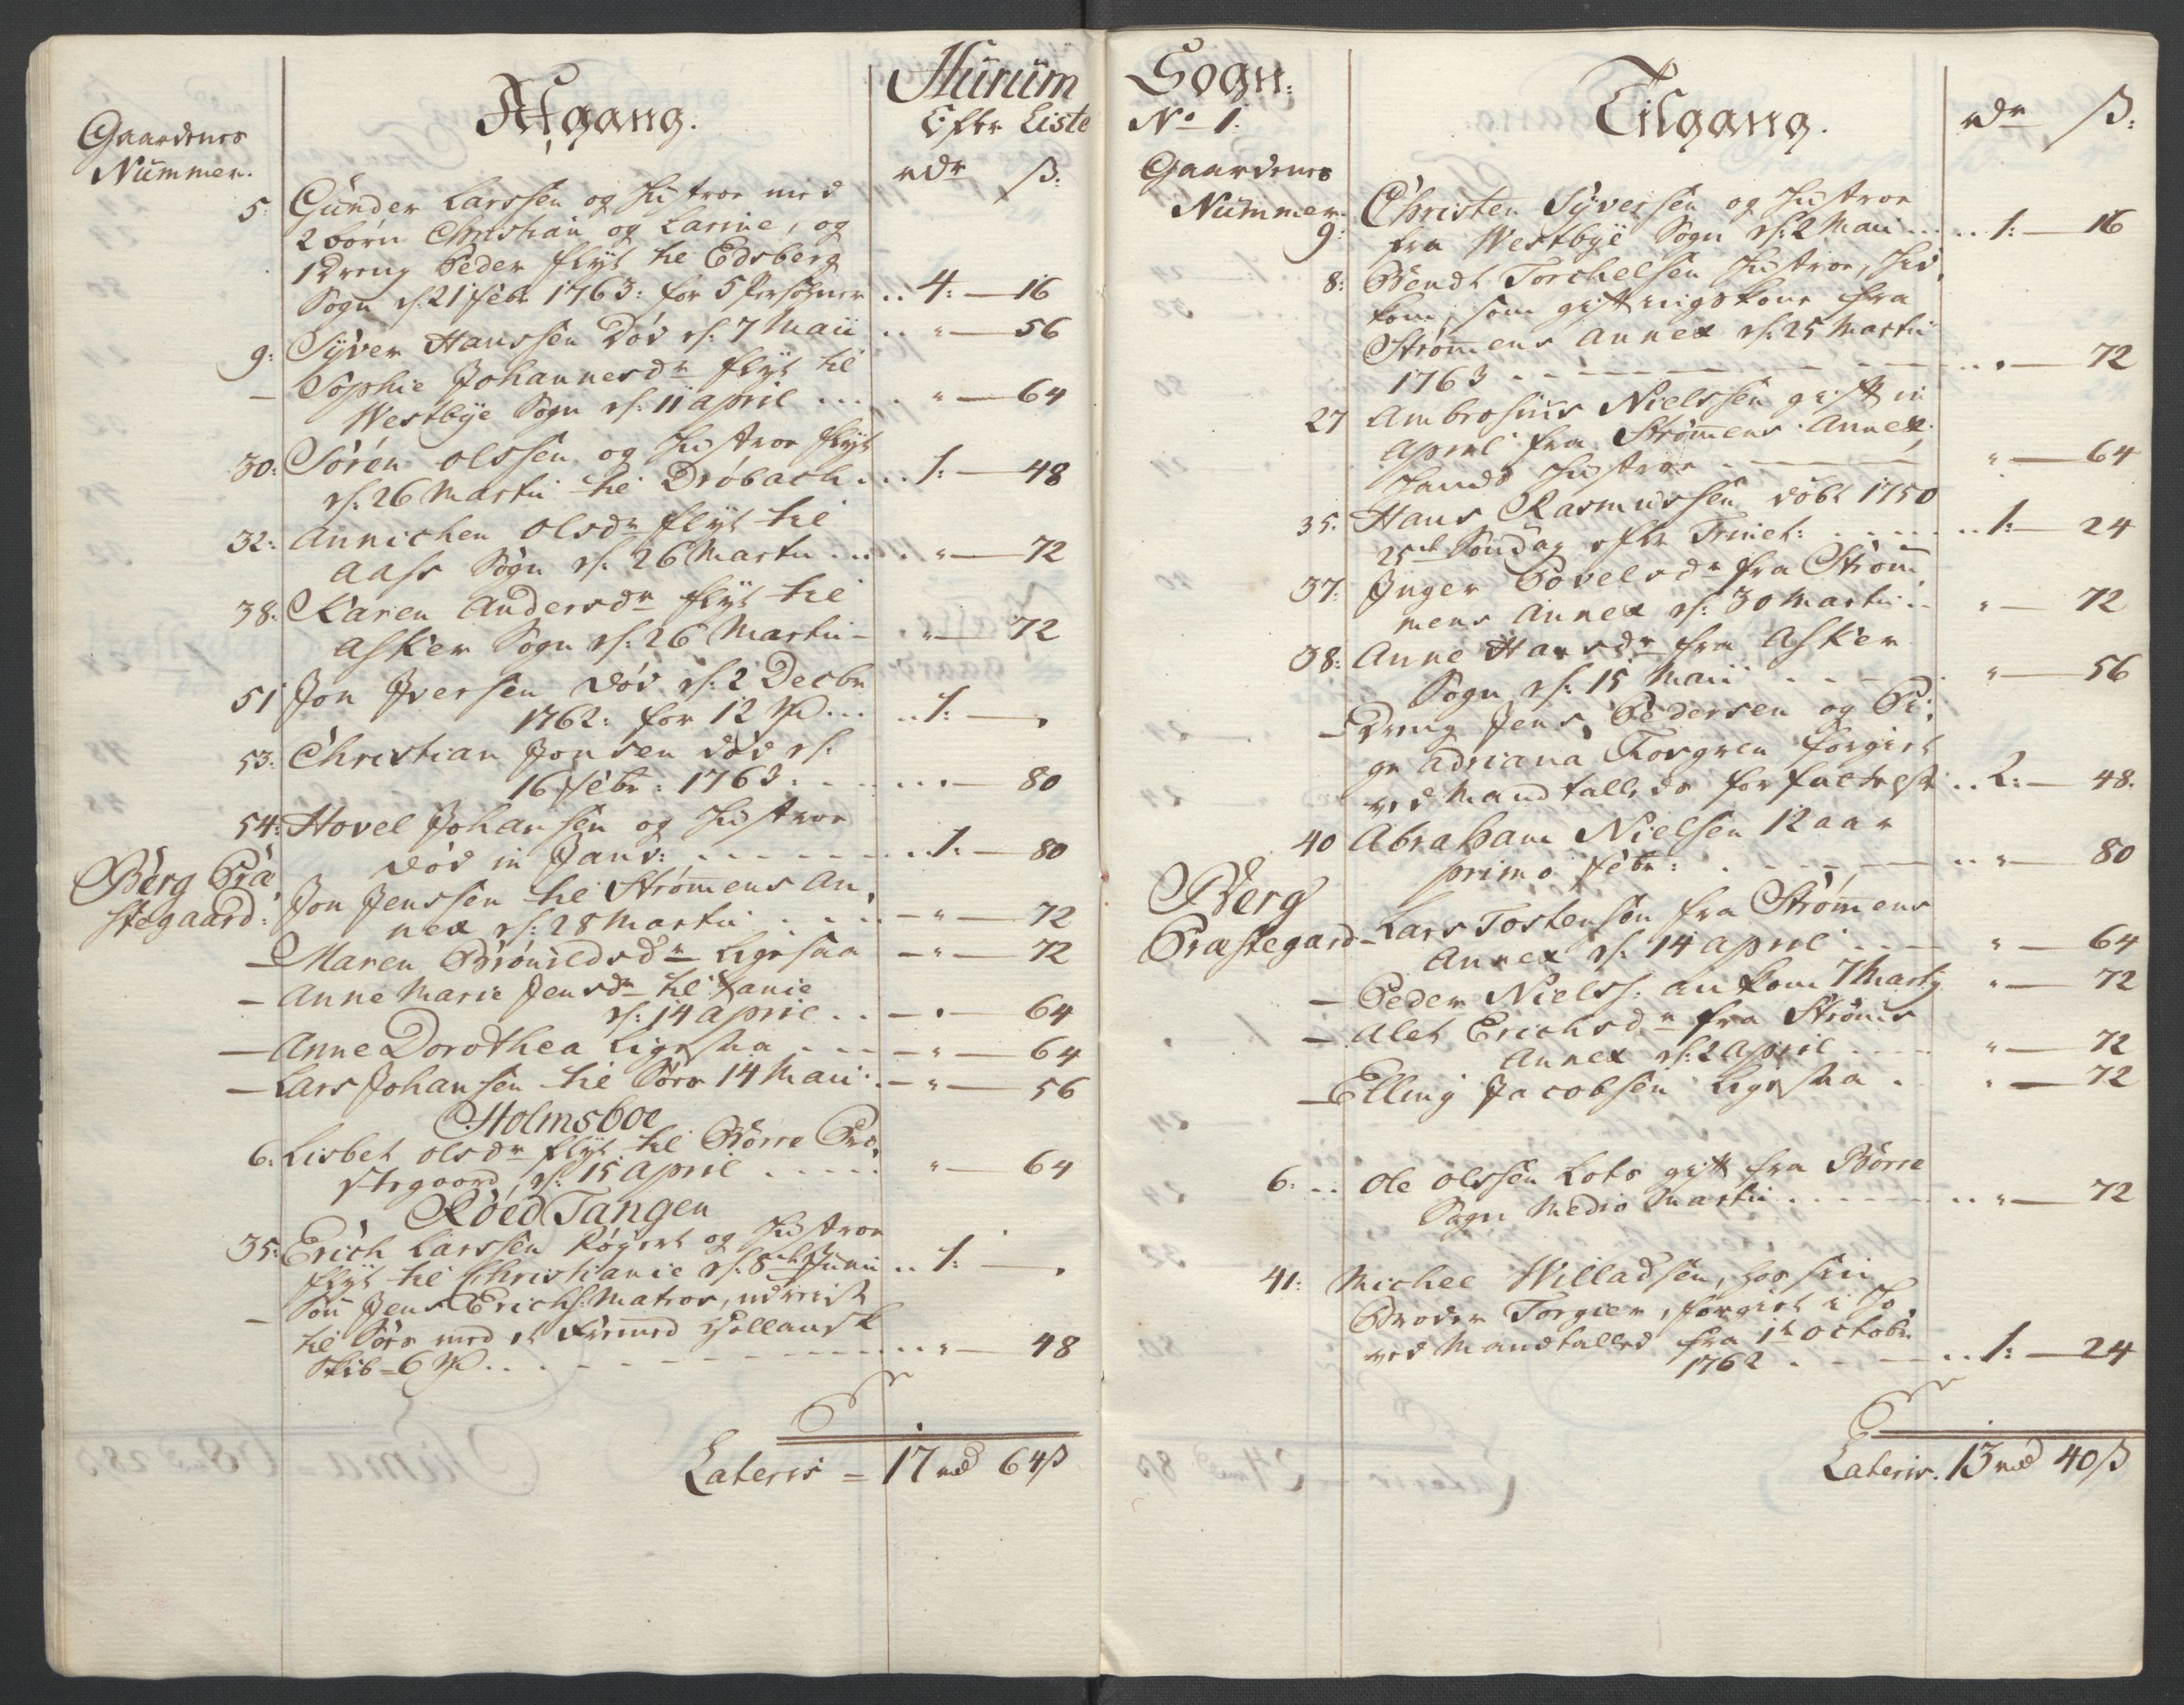 Hurum
Afgang.
Efter Liste
Gaardenes
Nummer.
rdr ß:
5: Gunder Larssen og Hustroe med
2 børn Christian og Larine, og
1 Dreng Peder flyt til Edsberg
Sogn d: 21 Febr 1763: for 5 Persohner .. 4: — 16
9: Syver Hanssen død d: 7 Maii .. " — 56
— Sophie Johannesdr flyt til
Westbye Sogn d: 11 april .... " — 64
30: Søren olssen og Hustroe flyt
d: 26 Martii til Drøbach ... 1: — 48
32: Annichen olsdr flyt til
Aass Sogn d: 26 Martii .... " — 72
38: Karen Andersdr flyt til
Asker Sogn d: 26 Martii — " — 72
51 Jon Iversen død d: 2 Decbr
1762: for 12 ... 1: — "
53: Christian Jonsen død d:
16 Febr: 1763 . . . . . " — 80
54: Hovel Johansen og Hustroe
død in Janv: . . . . . 1: — 80
Berg Præ
stegaard: Jon Jenssen til Strømens An
nex d: 28 Martii . . . . — " — 72
— Maren Brønildsdr ligesaa — " — 72
— Anne Marie Jensdr til
d: 14 april . . — " — 64
— Anne Dorothea ligesaa . . . — " — 64
— Lars Johansen til Søes 14 Maii . — " — 56
Holmsboe
6: Lisbet olsdr flyt til Børre Præ
stegaard, d: 15 april . . . . . " — 64
Røed Tangen
35: Erich Larssen og Hustroe
flyt til Christianie d: 8de Junii .. 1: — "
— Søn Jens Erichs: Matros, udreist
til Søes med et fremmed Hollandsk
Skib — 6 . . . . . . . . " — 48
Lateris = 17 rd 64 ß
Sogn:
No 1.
Tilgang.
rdr ß:
Gaardenes
Nummer.
9: Christen Syversen og Hustroe
fra Westbye Sogn d: 2 Maii .... 1: — 16
8: Bendt Torchelsen Hustroe, hid
kom, som gift kone fra
Strømens Annex d: 25 Martii
1763 . . . . . . . . " — 72
27 Ambrosius Nielssen gift in
April fra Strømens Annex,
hands Hustroe . . . " — 64
35. Hans Rasmussen døbt 1750
25de Søndag efter Trinit: . . . . . 1: — 24
37: Inger Povelsdr fra Strøm
mens Annex d: 30 Martii .. " — 72
38: Anne Hansdr fra Asker
Sogn d: 15 Maii . . . . " — 56
— Dreng Jens Pedersen og Pi
ge Adriana Torgren forgiet
ved Mandtallede forfattelse .. 2: — 48.
40 Abraham Nielsen 12 aar
primo Febr: . . . . . . " — 80
Berg
Præstegard — Lars Tostensøn fra Strømens
Annex d: 14 april . . . . " — 64
— Peder Niels: ankom 7 Martij " — 72
— Alet Erichsdr fra Strøms
Annex d: 2 April . . . . " — 72
— Elling Jacobsen ligesaa . " — 72
6: .. Ole olssen Lots gift fra Børre
Sogn Medio Martii . . . . . . . " — 72
41: Michel Willadsen, hos sin
Broder Torgier, forgiet i Jo
ved Mandtalled fra 1t october
1762 . . . . . . 1: — 24
Lateris. 13 rd 40 ß